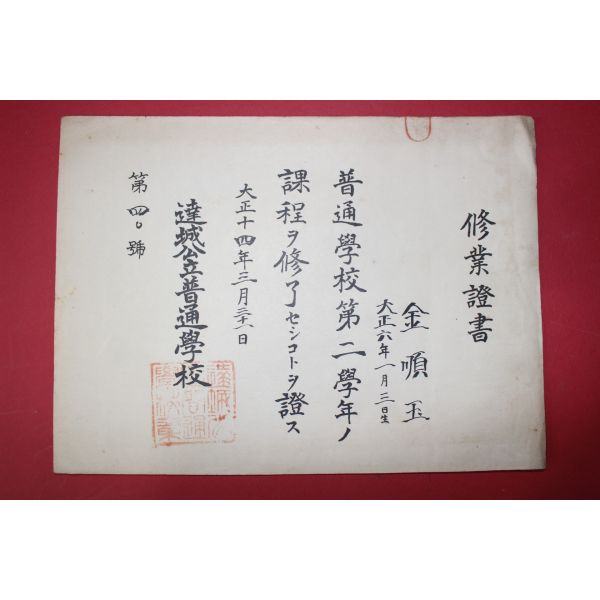 修業證書
金順玉
大正六年一月三日生
普通學校第二學年ノ
課程ヲ修了セシコトヲ證ス
大正十四年三月 日
達城公立普通學校
第四〇號